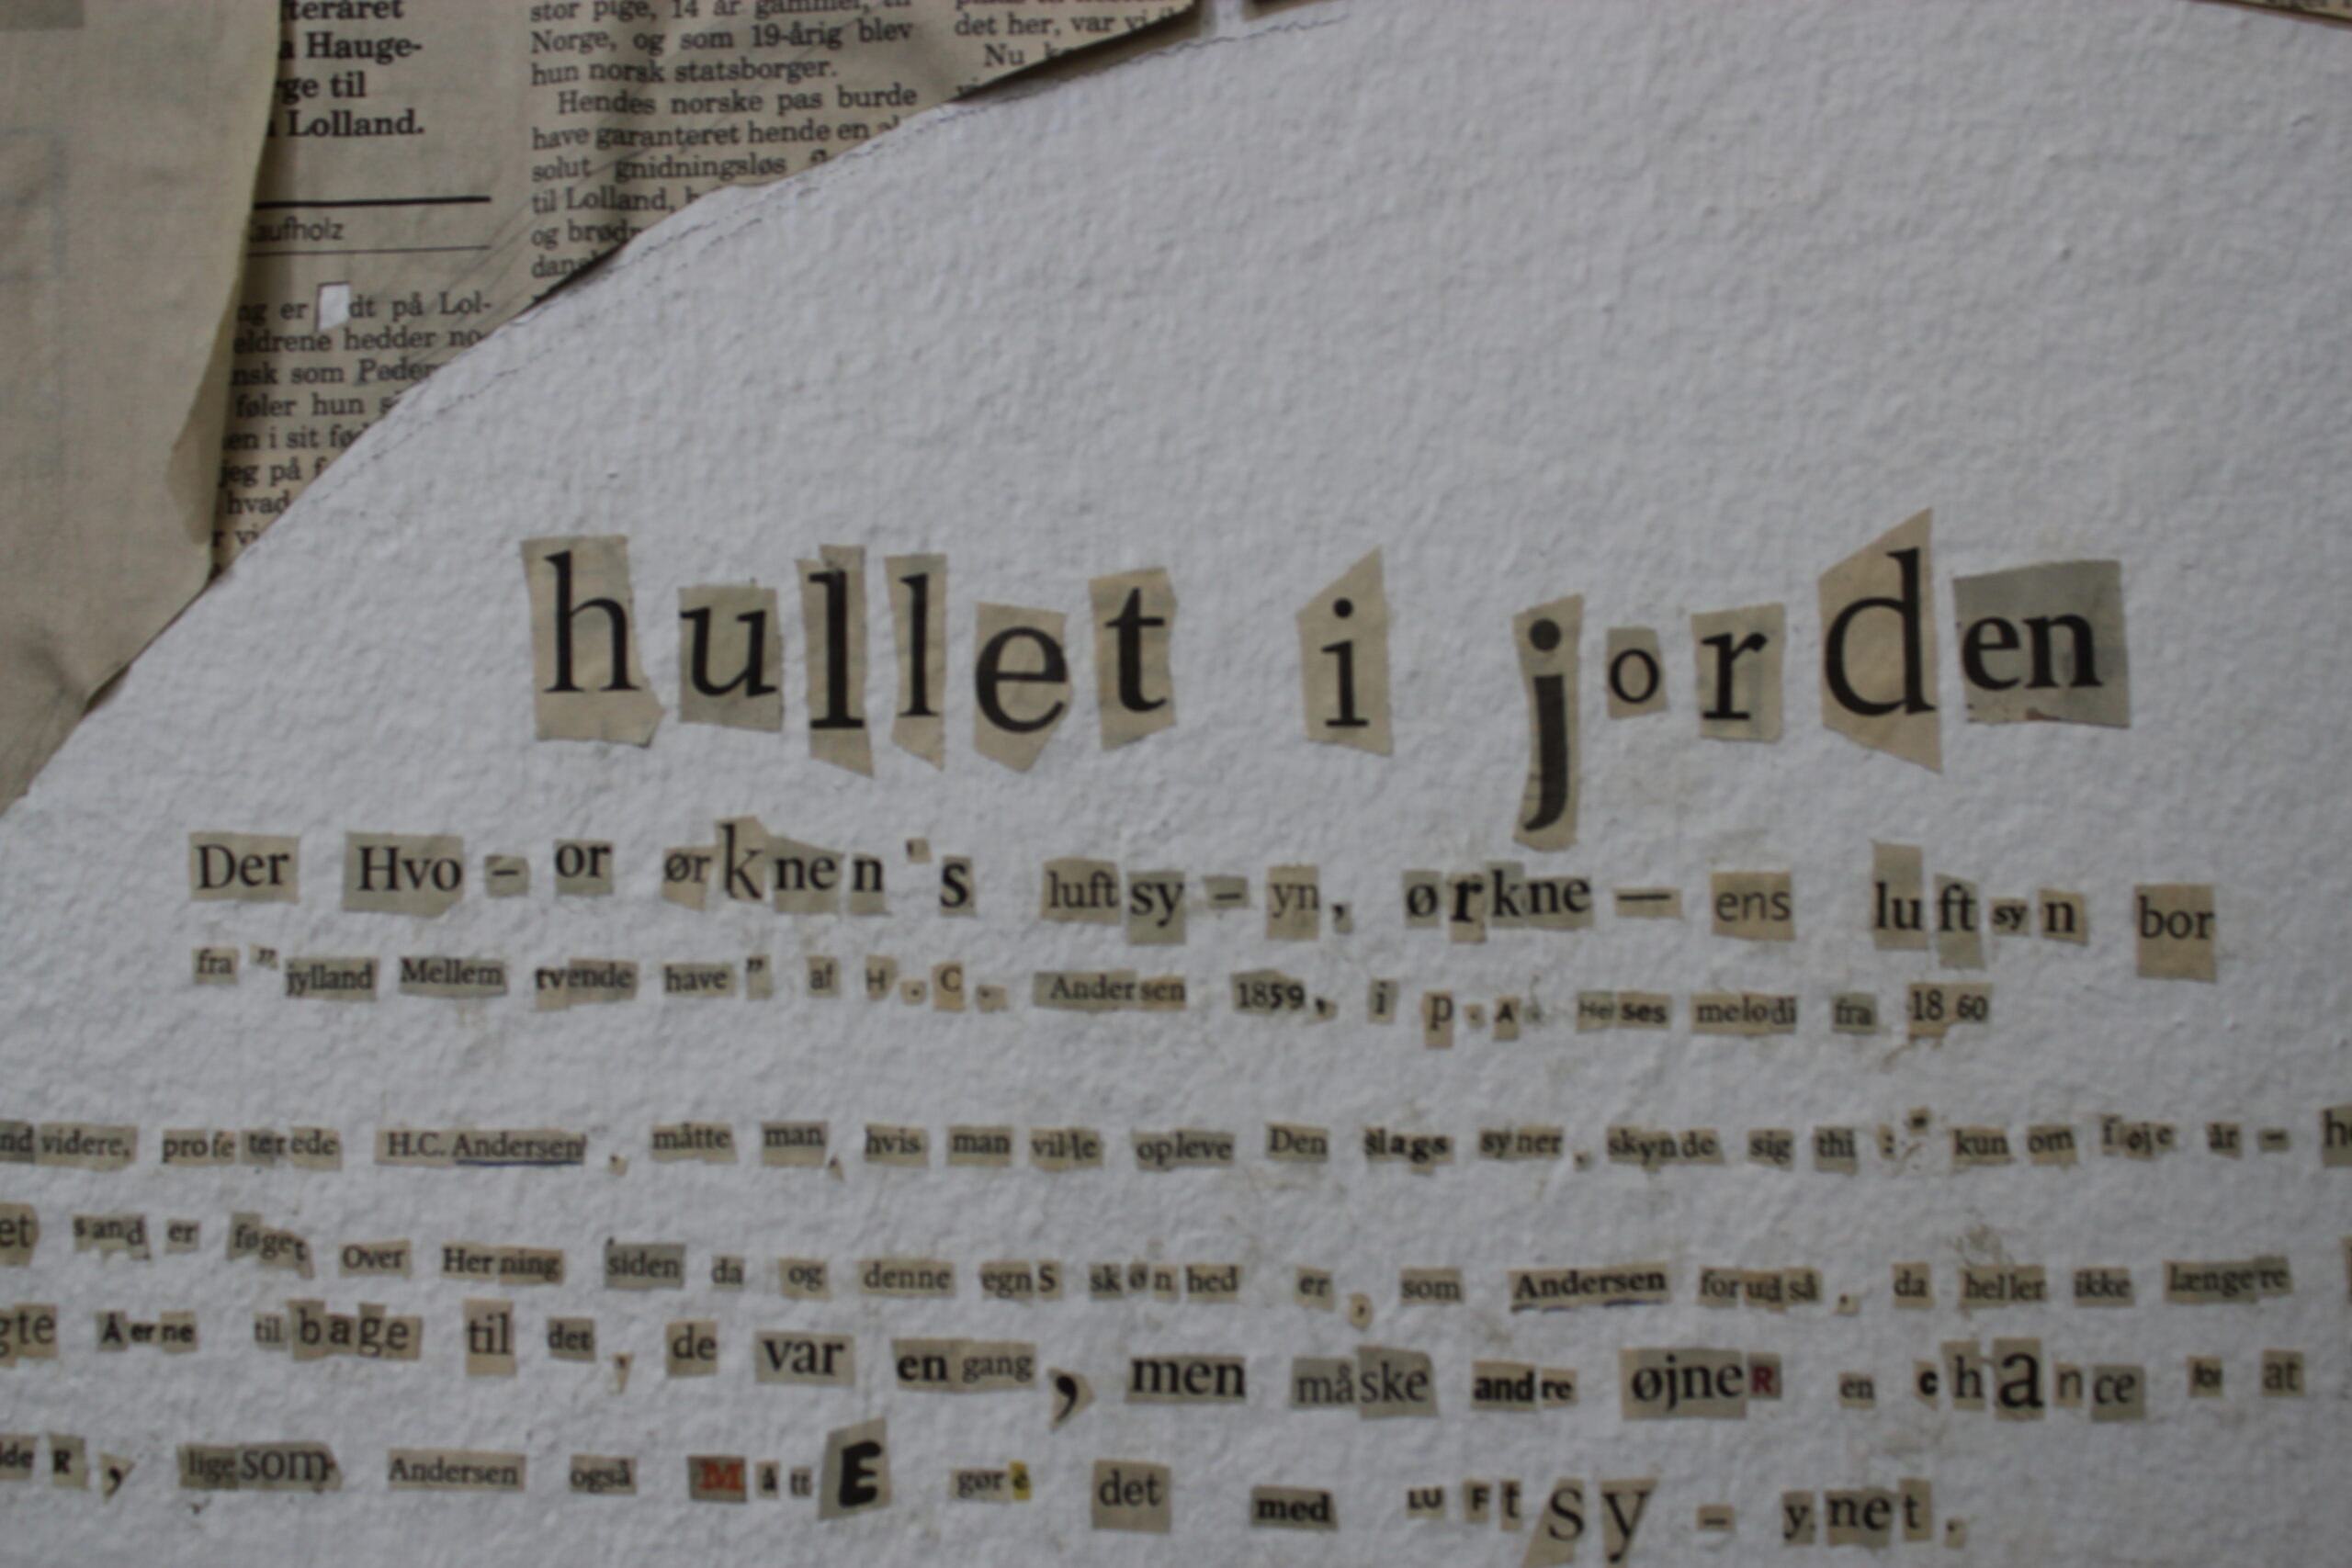 teråret
Hauge-
ge til
Lolland.
aufholz
ng er dt på Lol-
eldrene hedder no-
nsk som Peder
føler hun
en i sit fø
jeg på f
hvad
vi
stor pige, 14 år gammel,
Norge, og som 19-årig blev
hun norsk statsborger.
Hendes norske pas burde
have garanteret hende en
solut gnidningsløs
til Lolland,
og brødr
dans
det her, var vi
Nu
hullet i jorden
Der Hvo - or ørknen's luftsy - yn, ørkne — ens luftsyn bor
fra "jylland Mellem tvende have" af H.C. Andersen 1859, i p.A. Heises melodi fra 1860
nd videre, profeterede H.C. Andersen, måtte man, hvis man ville opleve Den slags syner, skynde sig thi :" kun om føje år - h
et sand er føget Over Herning siden da og denne egnS skønhed er, som Andersen forudså, da heller ikke længere
gte Aerne tilbage til det, de var en gang, men måske andre øjneR en chance for at
ldeR, ligesom Andersen også MåttE gøre det med LUFtsy - ynet.